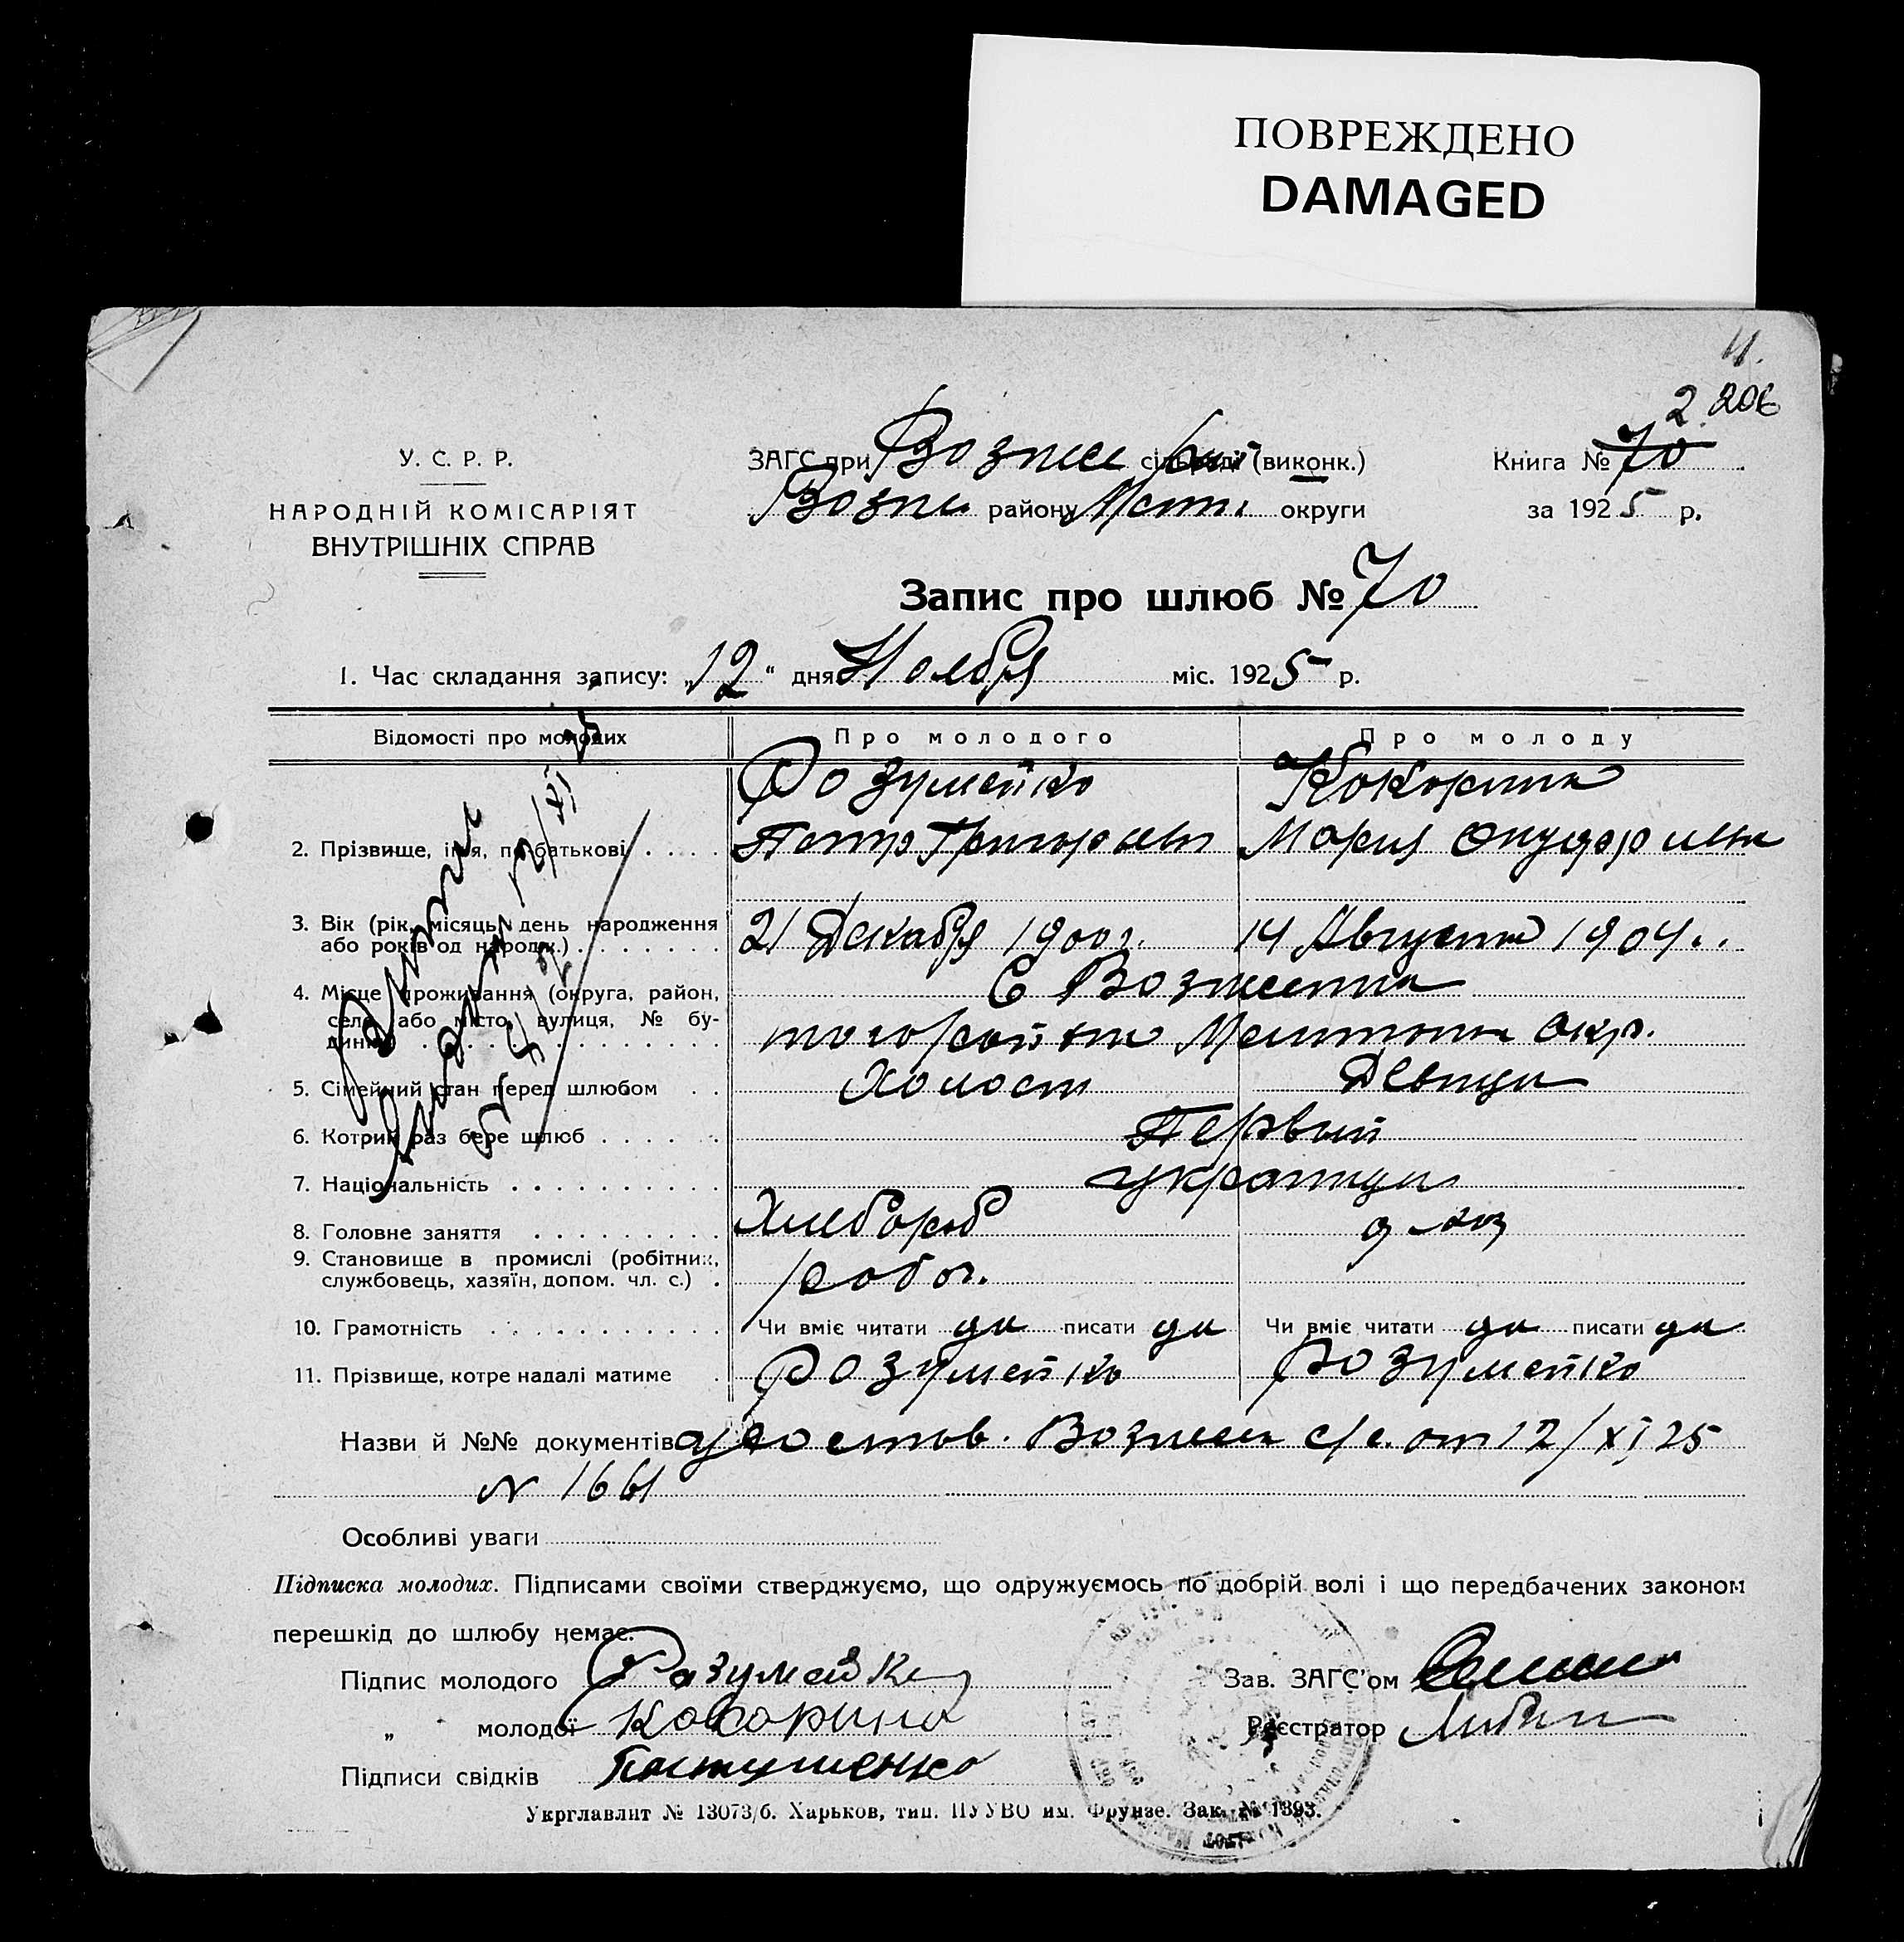 ПОВРЕЖДЕНО
DAMAGED
11.
2 206
У. С. Р. Р.
НАРОДНІЙ КОМІСАРІЯТ
ВНУТРІШНІХ СПРАВ
ЗАГС при Вознес сільраді (виконк.)
Возне району округи
Книга № 70
за 1925 р.
Запис про шлюб № 70
1. Час складання запису: „12“ дня Ноября міс. 1925 р.
Відомості про молодих Про молодого Про молоду
Розумейко
2. Прізвище, ім'я, по батькові Петр Григорьев Мария
3. Вік (рік, місяць, день народження 21 Декабря 1900 г. 14 Августа 1904
або років од народж.)
4. Місце проживання (округа, район, С Вознесенка
село або місто, вулиця, № бу-
динку) того района Окр.
5. Сімейний стан перед шлюбом Холост Девица
6. Котрий раз бере шлюб Первый
7. Національність украинцы
8. Головне заняття Хлебороб
9. Становище в промислі (робітник,
службовець, хазяїн, допом. чл. с.) рабоч.
10. Грамотність Чи вміє читати да писати да Чи вміє читати да писати да
11. Прізвище, котре надалі матиме Розумейко Розумейко
Назви й №№ документів удостов. Вознесен с/с. от 12/XI 25
N 1661
Особливі уваги
Підписка молодих. Підписами своїми стверджуємо, що одружуємось по добрій волі і що передбачених законом
перешкід до шлюбу немає.
Підпис молодого Разумейко
Зав. ЗАГС'ом
„ молодої
Реєстратор
Підписи свідків
Укрглавлит № 13073/б. Харьков, тип. ПУУВО им. Фрунзе. Зак. № 1393.